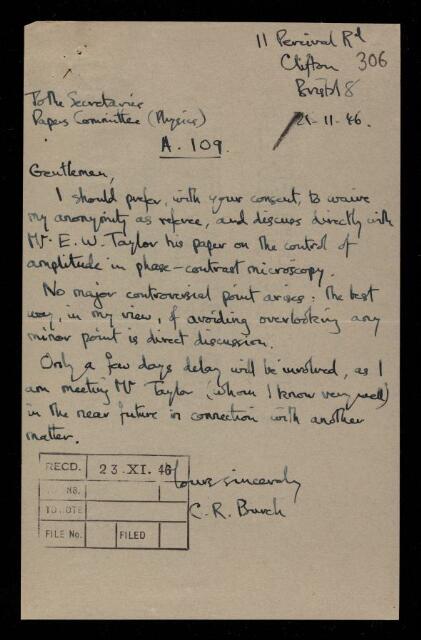 11 Percival Rd
Clifton 306
Bristol 8
21-11-46.
To the Secretaries
Papers Committee (Physics)
A. 109.
Gentlemen,
I should prefer, with your consent, to waive
my anonymity as referee, and discuss directly with
Mr. E. W. Taylor his paper on the control of
amplitude in phase-contrast microscopy.
No major controversial point arises: the best
way, in my view, of avoiding overlooking any
minor point is direct discussion.
Only a few days delay will be involved, as I
am meeting Mr Taylor (whom I know very well)
in the near future in connection with another
matter.
Yours sincerely
C. R. Burch
RECD. 23. XI. 46
NS.
TO NOTE
FILE No. FILED